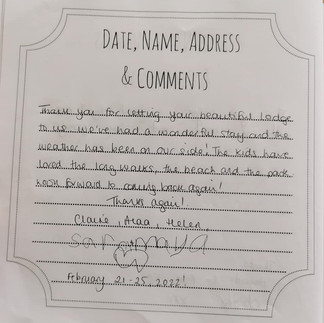 DATE, NAME, ADDRESS
& COMMENTS
Thank you for letting your beautiful Lodge
to us. we've had a wonderful stay and the
weather has been on our side! The kids have
loved the long walks, the beach and the park
look forward to coming back again!
Thanks again!
Claire, Helen,
February 21-25, 2022!